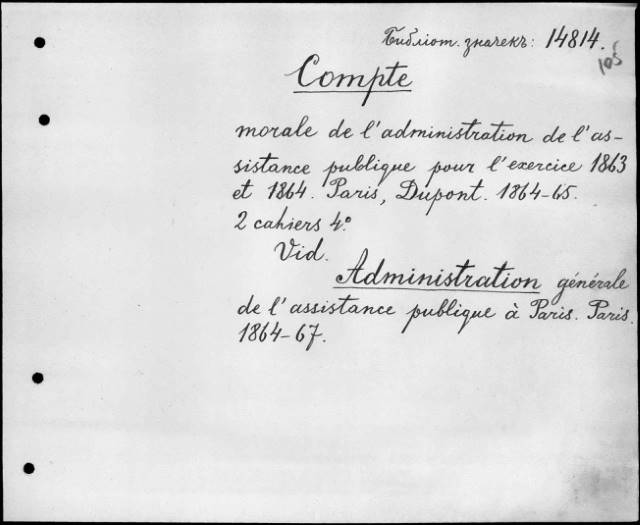 Библіот. значекъ: 14814.
105
Compte
morale de l'administration de l'as-
sistance publique pour l'exercice 1863
et 1864. Paris, Dupont. 1864-65.
2 cahiers 4°
Vid.
Administration générale
de l'assistance publique à Paris. Paris.
1864-67.